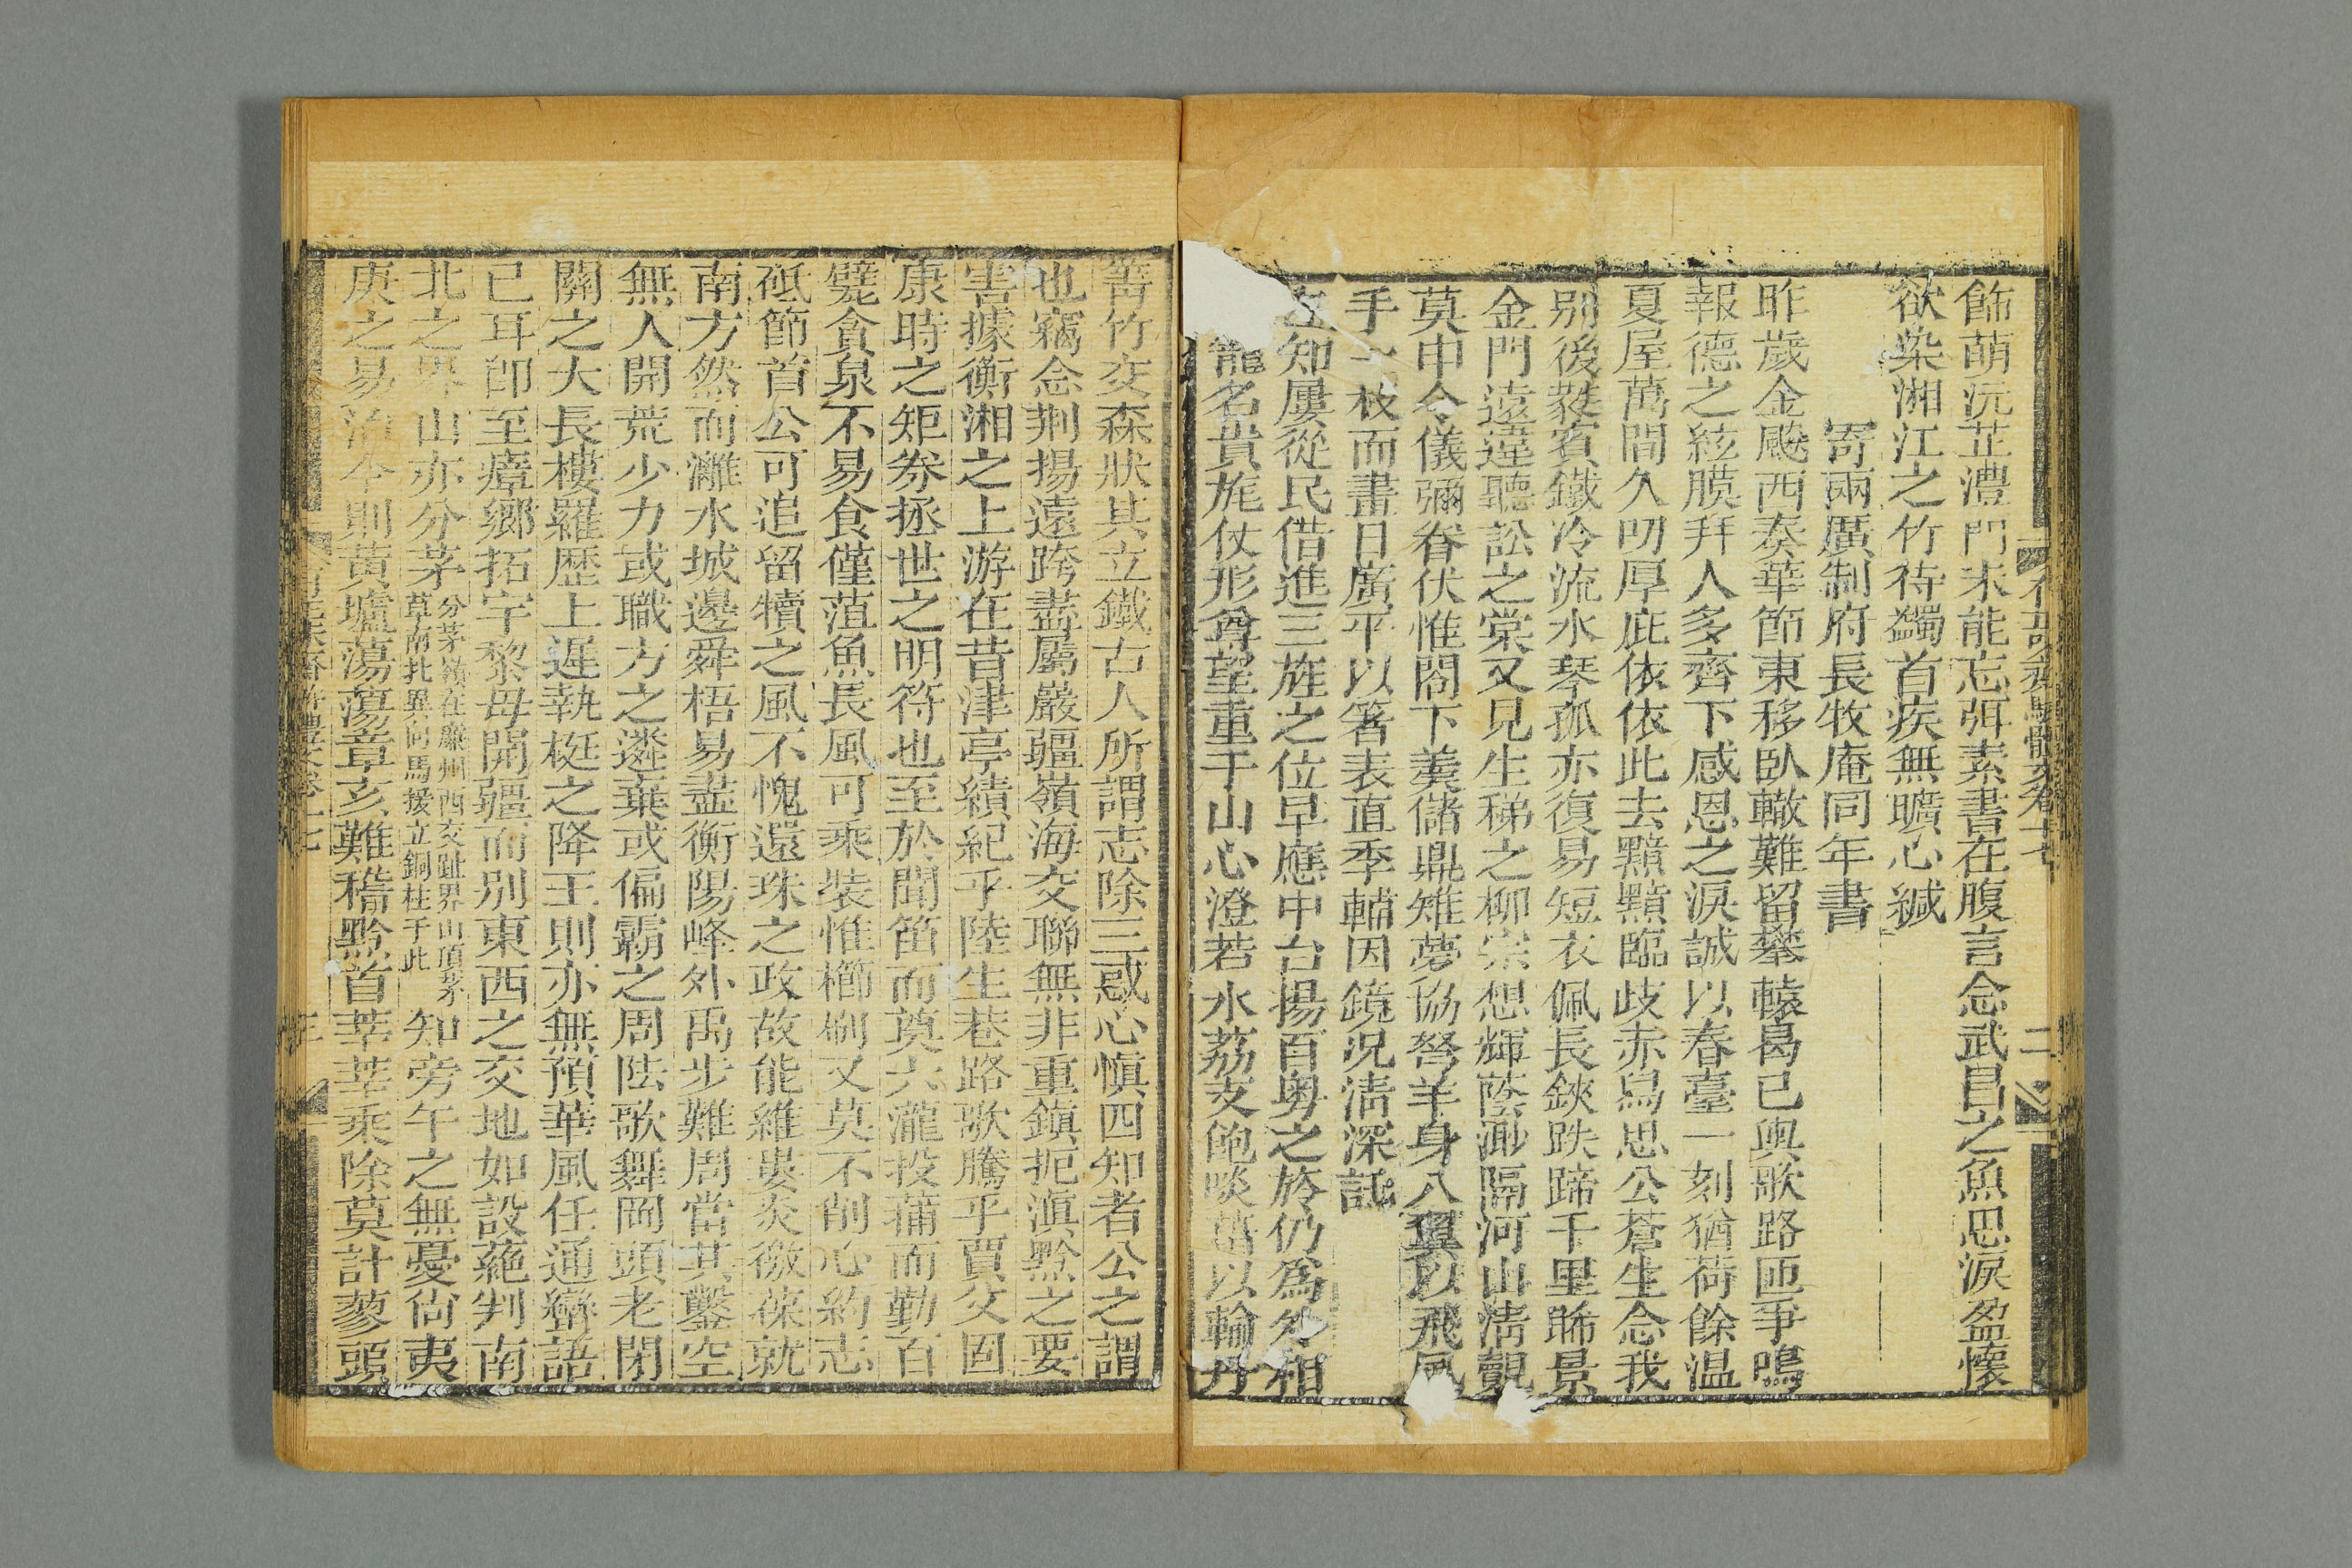 飾萌沅芷澧門未能忘弭素書在腹言念武昌之魚思淚盈懷
欲染湘江之竹待蠲首疾無曠心緘
寄兩廣制府長牧庵同年書
昨歲金颷西奏華節東移臥轍難留攀轅曷已輿歌路匝爭鳴
報德之絃膜拜人多齊下感恩之淚誠以春臺一刻猶荷餘温
夏屋萬間久叨厚庇依依此去黯黯臨歧赤舄思公蒼生念我
别後蕤賓鐵冷流水琴孤亦復易短衣佩長鋏跌蹄千里睎景
金門遠違聽訟之棠又見生稊之柳宗想輝蔭渺隔河山淸覿
莫申令儀彌眷伏惟閣下羹儲鼎雉夢協咎羊身八翼以飛風
手一枝而畫日廣平以箸表直季輔因鏡况淸深託
知屢從民借進三旌之位早應中台揚百粤之於仍爲外相
龍名貴旄仗形尊望重于山心澄若水荔支飽啖蓄以輪丹
篛竹交森狀其立鐵古人所謂志除三惑心愼四知者公之謂
也竊念荆揚遠跨盡屬嚴疆嶺海交聯無非重鎭扼滇黔之要
害據衡湘之上游在昔津亭績紀乎陸生巷路歌騰乎賈父固
康時之矩劵拯世之明符也至於聞笛而奠六瀧投蒲而勤百
甓貪泉不易食僅菹魚長風可乘裝惟櫛刷又莫不削心約志
砥節首公可追留犢之風不愧還珠之政故能維婁炎徼葆就
南方然而灕水城邊舜梧易盡衡陽峰外禹步難周當其鑿空
無人開荒少力或職方之遴棄或偏霸之周阹歌舞岡頭老閉
關之大長樓羅歷上遲執梃之降王則亦無預華風任通蠻語
已耳卽至瘴鄉拓宇黎母開疆而别東西之交地如設蕝判南
北之界山亦分茅分茅嶺在廉州西交趾界山頂茅草南北異向馬援立銅柱于此知旁午之無憂尙夷
庚之易治今則黃壚蕩蕩章亥難稽黔首莘莘乘除莫計蓼頭